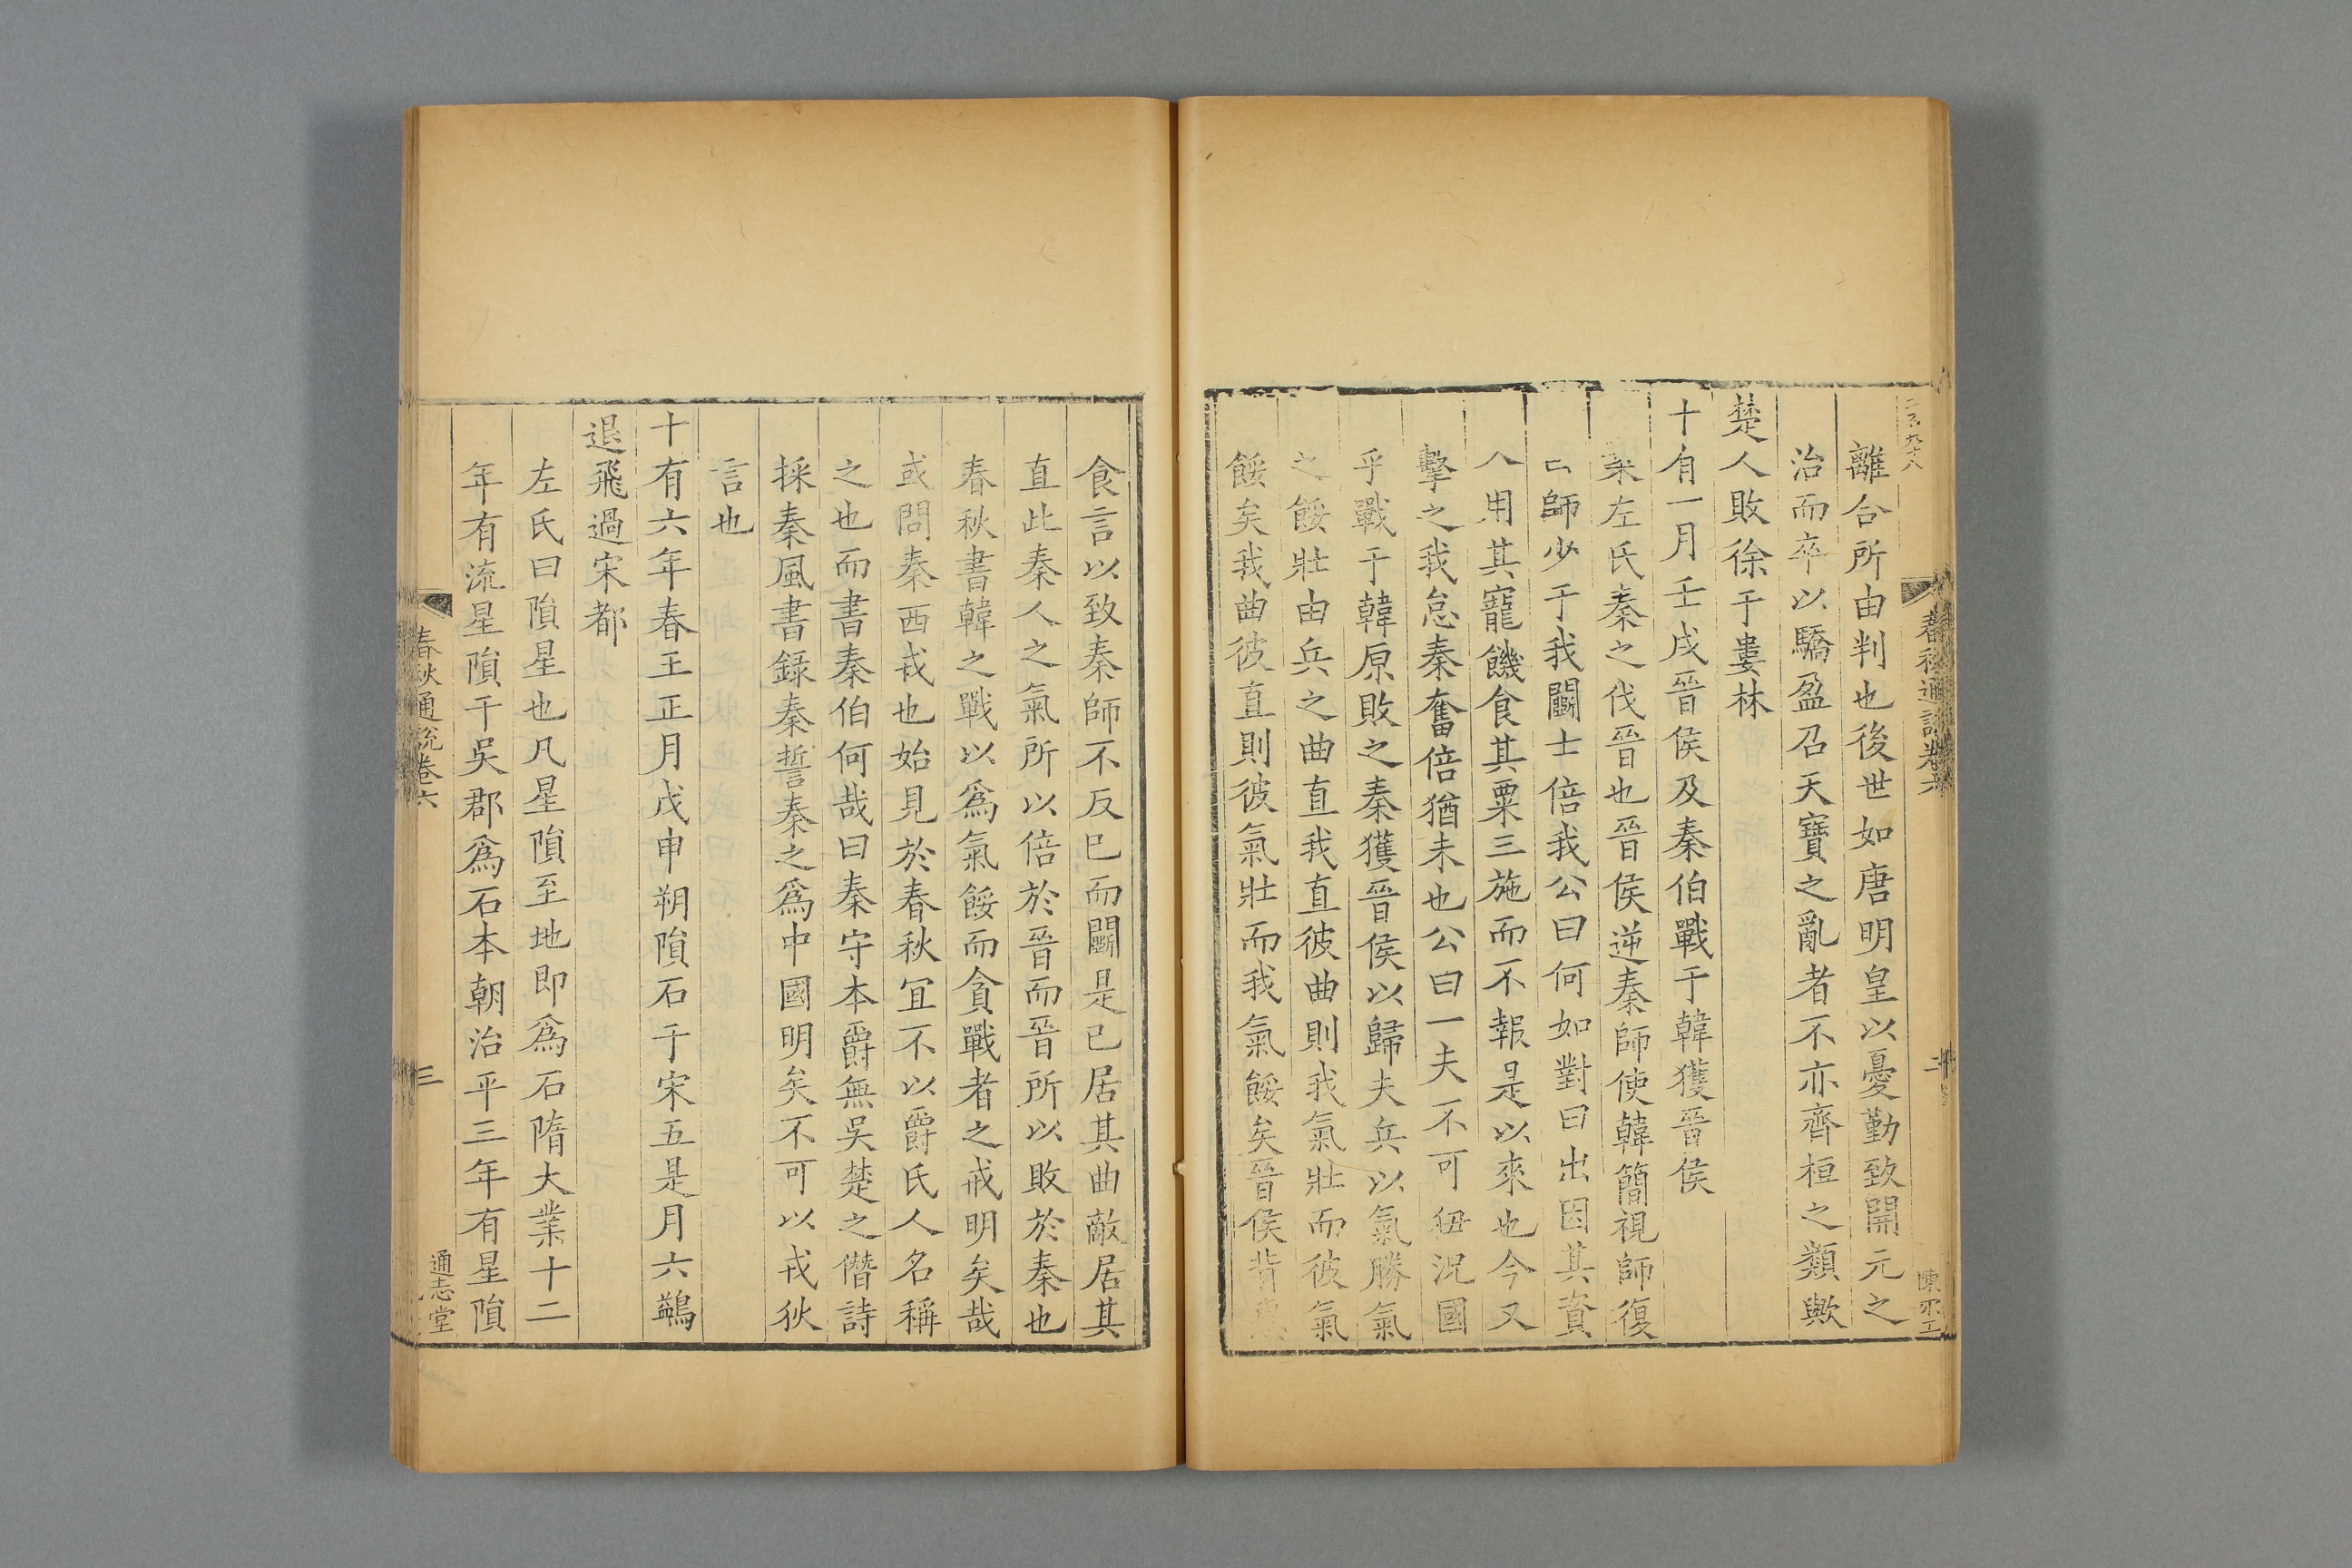 離合所由判也後世如唐明皇以憂勤致開元之
治而卒以驕盈召天寶之亂者不亦齊桓之類歟
楚人敗徐于婁林
十有一月壬戌晉侯及秦伯戰于韓獲晉侯
案左氏秦之伐晉也晉侯逆秦師使韓簡視師復
曰師少于我鬭士倍我公曰何如對曰出因其資
入用其寵饑食其粟三施而不報是以來也今又
擊之我怠秦奮倍猶未也公曰一夫不可狃況國
乎戰于韓原敗之秦獲晉侯以歸夫兵以氣勝氣
之餒壯由兵之曲直我直彼曲則我氣壯而彼氣
餒矣我曲彼直則彼氣壯而我氣餒矣晉侯背
春秋通說卷六
二
食言以致秦師不反已而鬭是已居其曲敵居其
直此秦人之氣所以倍於晉而晉所以敗於秦也
春秋書韓之戰以爲氣餒而貪戰者之戒明矣哉
或問秦西戎也始見於春秋宜不以爵氏人名稱
之也而書秦伯何哉曰秦守本爵無吳楚之僭詩
採秦風書録秦誓秦之爲中國明矣不可以戎狄
言也
十有六年春王正月戊申朔隕石于宋五是月六鷁
退飛過宋都
左氏曰隕星也凡星隕至地即爲石隋大業十二
年有流星隕于吳郡爲石本朝治平三年有星隕
春秋通說卷六
三
通志堂